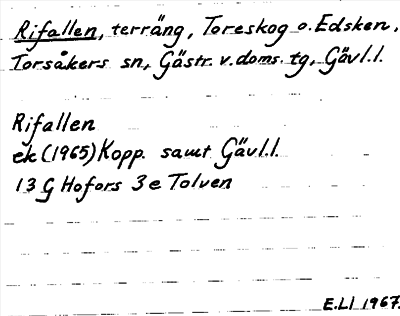 Rifallen, terräng, Toreskog o. Edsken,
Torsåkers sn, Gästr. v. doms. tg, Gävl.l.
Rifallen
ek (1965) Kopp. samt Gävl.l.
13 G Hofors 3 e Tolven
E.LI 1967.